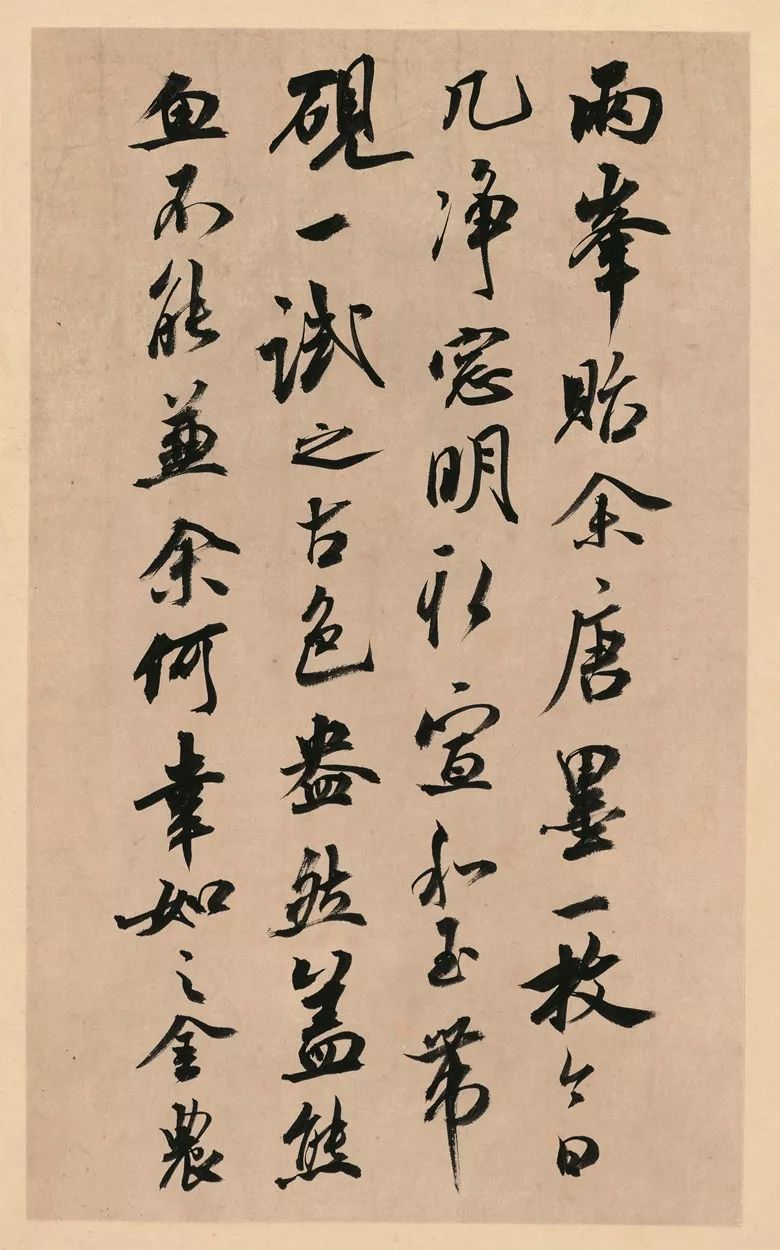 兩峯貽余唐墨一枚今日
几净窓明取宣和玉帶
硯一試之古色盎然蓋熊
魚不能兼余何幸如之金農